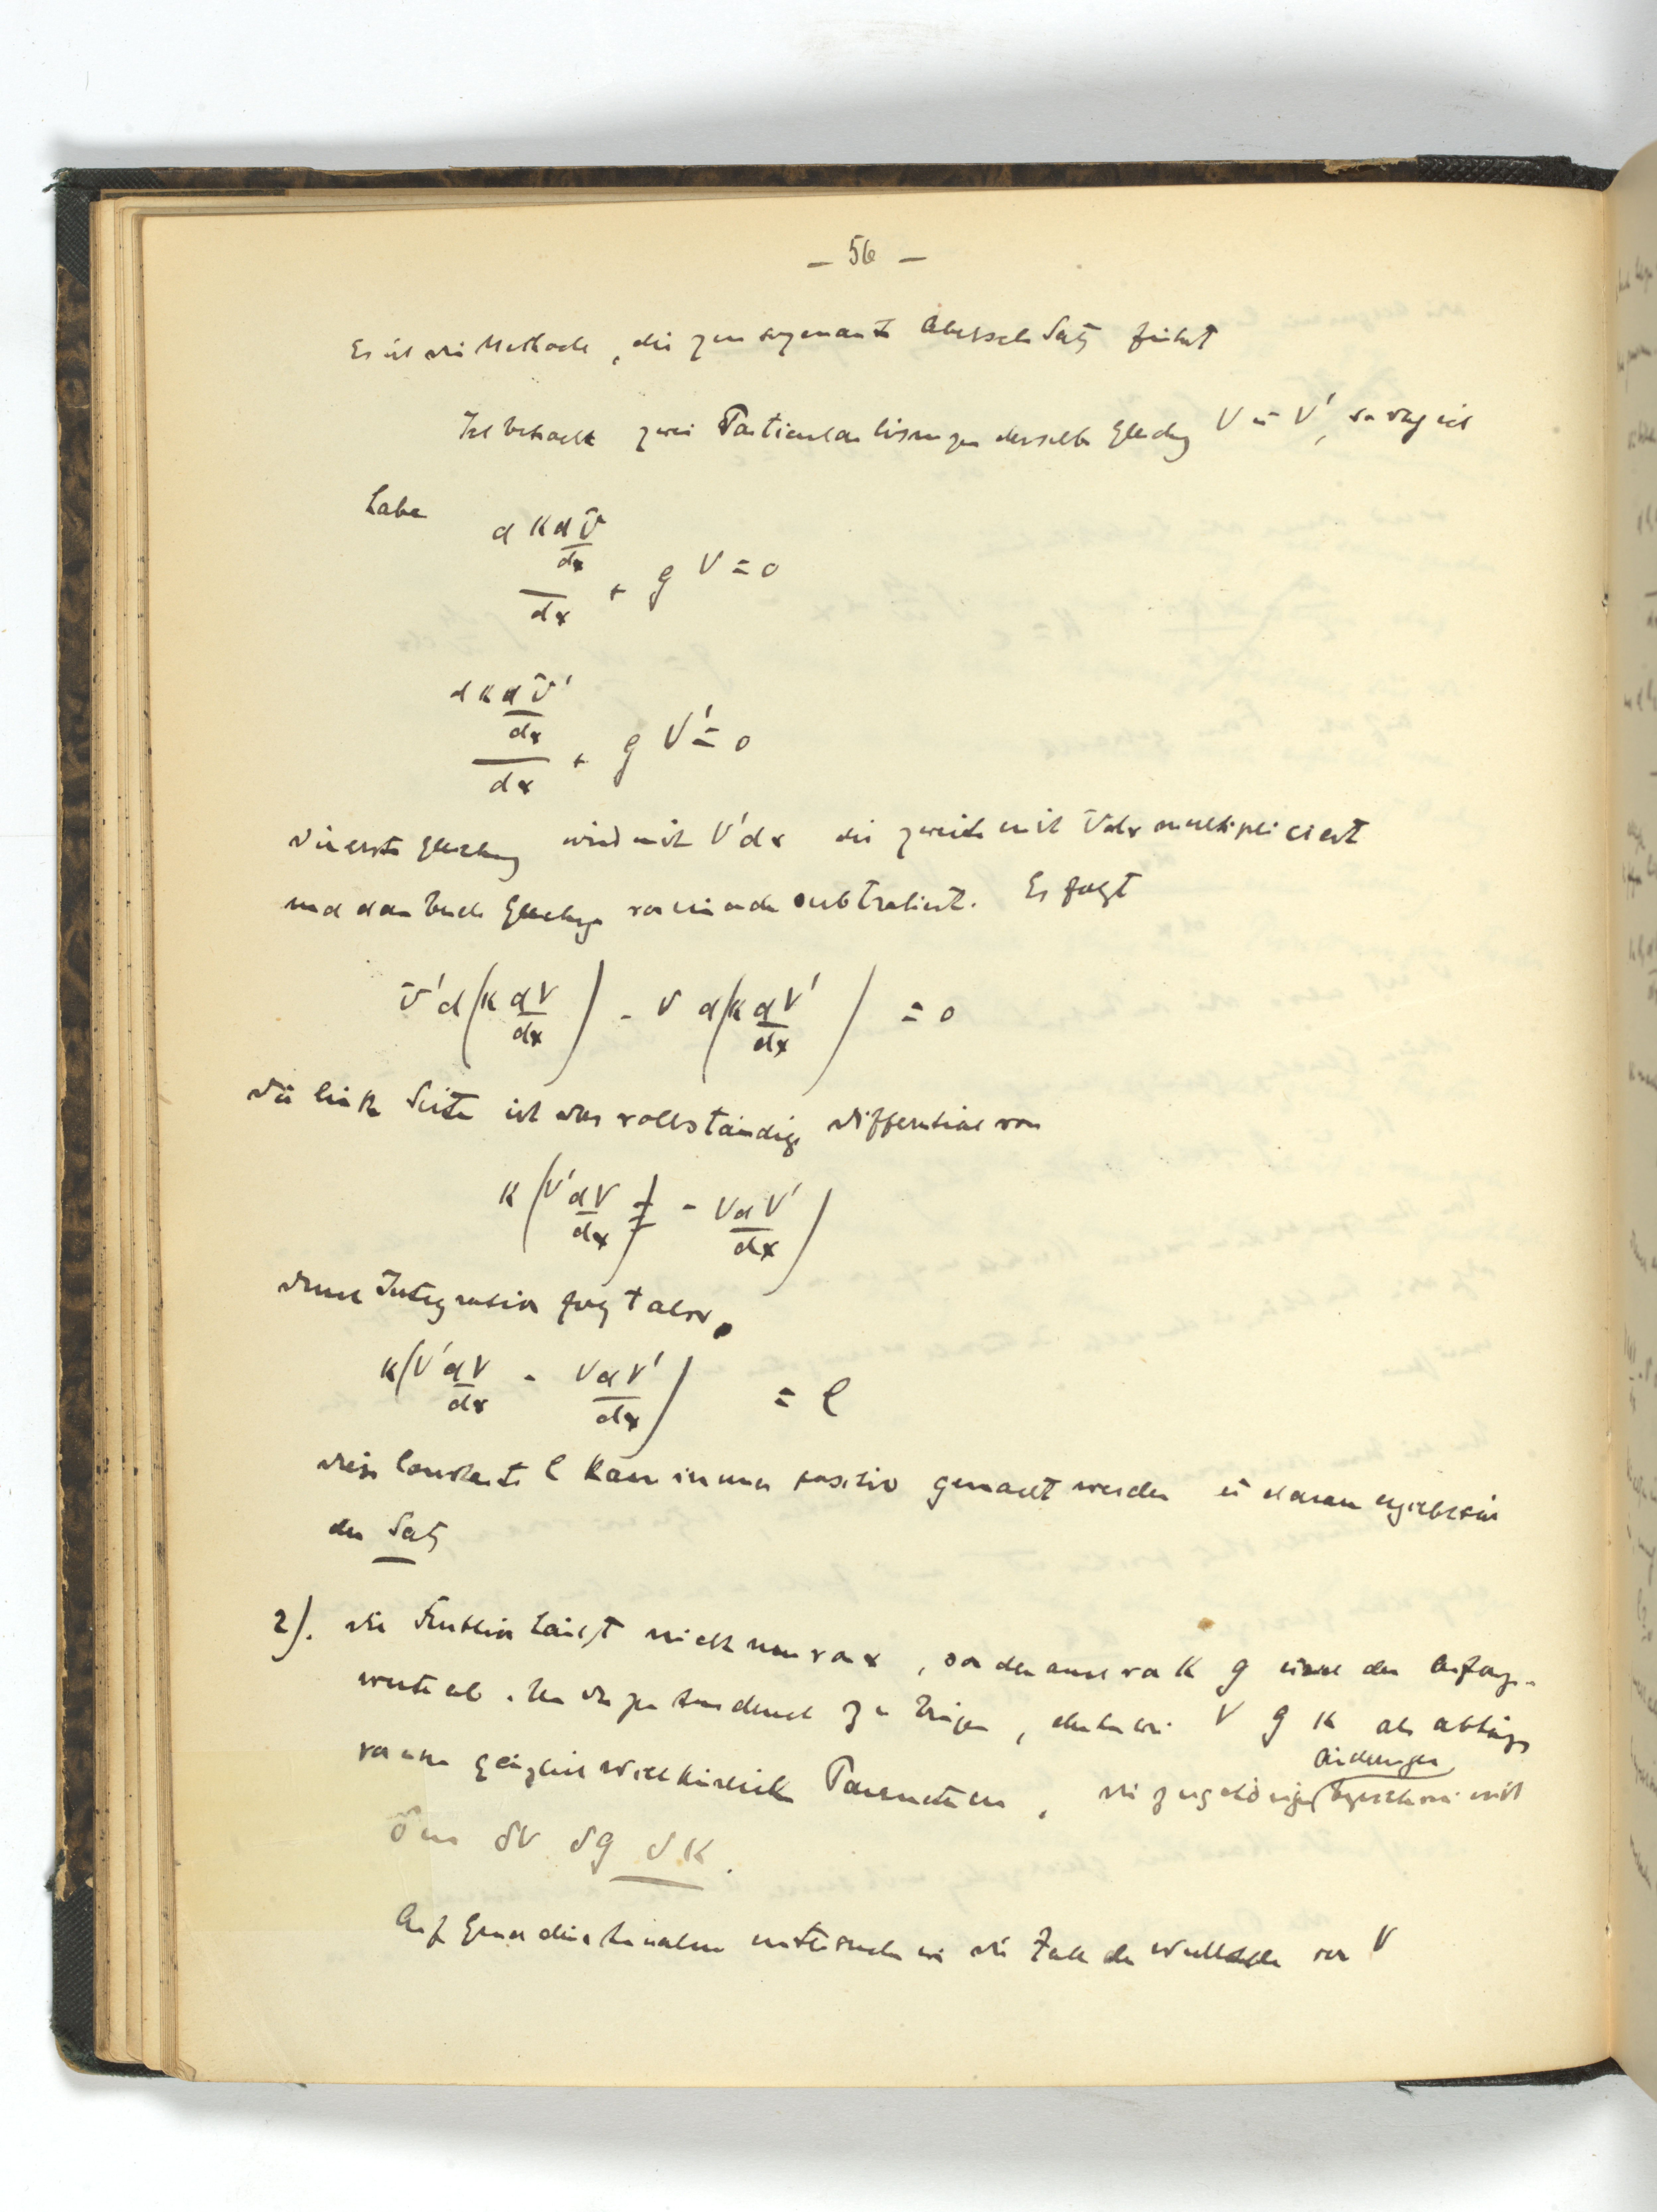 – 56 –
Es ist die Methode, die zum sogenannt Abelsch Satz führt
Ich betracht zwei Particularlösungen derselb Gleichg V u V', so daß ich
habe
d K dV/dx / dx + g V = 0
d K dV'/dx / dx + g V' = 0
Die erste Gleichung wird mit V'dx die zweite mit Vdx multipliciert
und dan beide Gleichunge voneinander subtrahiert. Es folgt
V'd(K dV/dx) - V d(K dV'/dx) = 0
Die linke Seite ist das vollständige Differential von
K (V'dV/dx - VdV'/dx)
durch Integration folgt also
K(V'dV/dx - VdV'/dx) = C
Diese Constante C kann immer positiv gemacht werden u daraus ergiebt sich
der Satz
2). Die Funktion hängt nicht nur von x, sondern auch von K g und den Anfangs-
werte ab. Um das zum Ausdruck zu bringen, denken wir V g K als abhängig
von einem gänzlich willkürlich Parameter, die zugehörigen Änderungen bezeichnen wir mit
δm δV δg δK.
Auf Grund dieser Annahme untersuchen wir die Zahl der Nullstelle von V